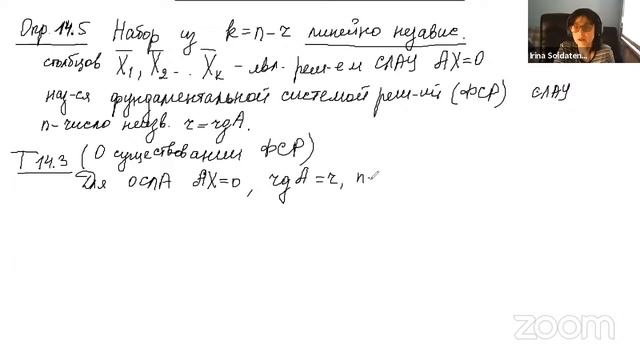 Опр. 14.5 Набор из k=n-r линейно независ.
столбцов X̅₁, X̅₂... X̅ₖ - явл. реш-ем СЛАУ AX=0
наз-ся фундаментальной системой реш-ий (ФСР) СЛАУ
n-число неизв. r=rgA.
Т 14.3 (О существовании ФСР)
Для ОСЛА AX=0, rgA=r, n-
Irina Soldaten...
zoom